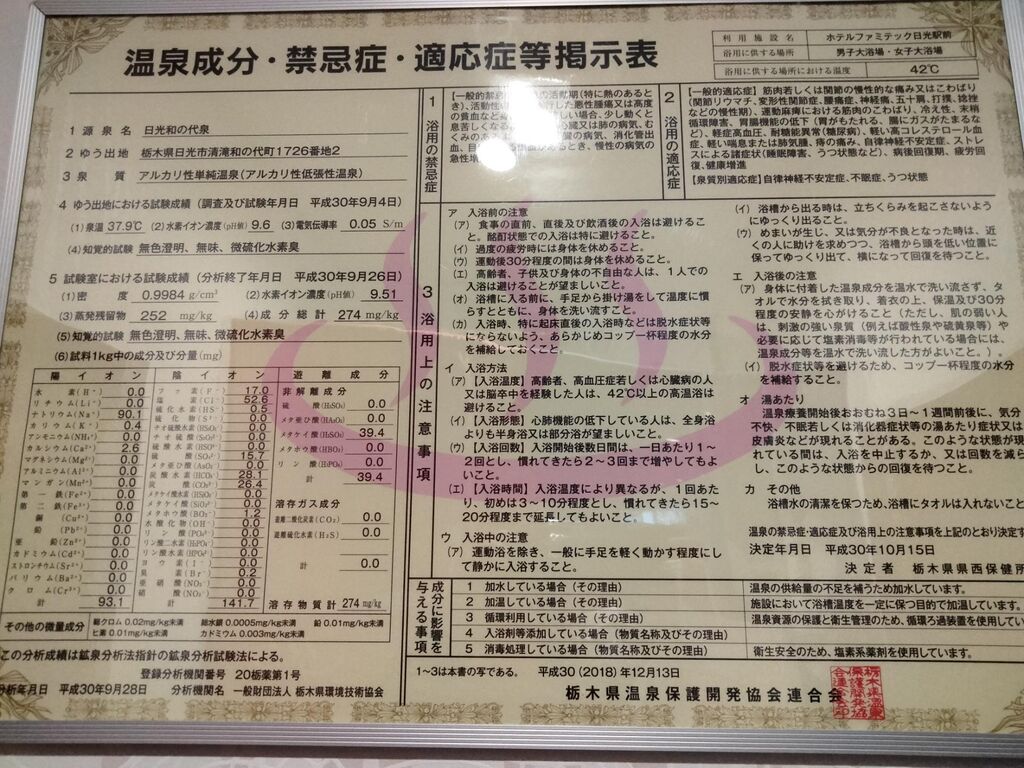 温泉成分・禁忌症・適応症等掲示表
利用施設名 ホテルファミテック日光駅前
浴用に供する場所 男子大浴場・女子大浴場
浴用に供する場所における温度 42℃
1 源泉名 日光和の代泉
2 ゆう出地 栃木県日光市清滝和の代町1726番地2
3 泉質 アルカリ性単純温泉(アルカリ性低張性温泉)
4 ゆう出地における試験成績(調査及び試験年月日 平成30年9月4日)
(1)泉温 37.9℃ (2)水素イオン濃度(pH値) 9.6 (3)電気伝導率 0.05 S/m
(4)知覚的試験 無色澄明、無味、微硫化水素臭
5 試験室における試験成績(分析終了年月日 平成30年9月26日)
(1)密度 0.9984 g/cm³ (2)水素イオン濃度(pH値) 9.51
(3)蒸発残留物 252 mg/kg (4)成分総計 274 mg/kg
(5)知覚的試験 無色澄明、無味、微硫化水素臭
(6)試料1kg中の成分及び分量(mg)
陽イオン
水素(H⁺) 0.0
リチウム(Li⁺) 0.0
ナトリウム(Na⁺) 90.1
カリウム(K⁺) 0.4
アンモニウム(NH₄⁺) 0.0
カルシウム(Ca²⁺) 2.6
マグネシウム(Mg²⁺) 0.0
アルミニウム(Al³⁺) 0.0
マンガン(Mn²⁺) 0.0
第一鉄(Fe²⁺) 0.0
第二鉄(Fe³⁺) 0.0
銅(Cu²⁺) 0.0
鉛(Pb²⁺) 0.0
亜鉛(Zn²⁺) 0.0
カドミウム(Cd²⁺) 0.0
ストロンチウム(Sr²⁺) 0.0
バリウム(Ba²⁺) 0.0
クロム(Cr³⁺) 0.0
計 93.1
陰イオン
フッ素(F⁻) 17.0
塩素(Cl⁻) 52.6
硫化水素(HS⁻) 0.5
硫化物(S²⁻) 0.0
チオ硫酸 0.0
硫酸水素(HSO₄⁻) 0.0
硫酸(SO₄²⁻) 15.7
メタ亜ヒ酸(AsO₂⁻) 0.0
炭酸水素(HCO₃⁻) 28.1
炭酸(CO₃²⁻) 26.4
メタケイ酸水素(HSiO₃⁻) 0.0
メタケイ酸(SiO₃²⁻) 0.0
メタホウ酸(BO₂⁻) 1.2
水酸化物(OH⁻) 0.0
リン酸(PO₄³⁻) 0.0
リン酸二水素 0.0
リン酸水素 0.0
ヨウ素(I⁻) 0.0
臭素(Br⁻) 0.2
硝酸(NO₃⁻) 0.0
計 141.7
遊離成分
非解離成分
硫酸(H₂SO₄) 0.0
メタ亜ヒ酸(HAsO₂) 0.0
メタケイ酸(H₂SiO₃) 39.4
メタホウ酸(HBO₂) 0.0
リン酸(H₃PO₄) 0.0
計 39.4
溶存ガス成分
遊離二酸化炭素(CO₂) 0.0
遊離硫化水素(H₂S) 0.0
計 0.0
溶存物質計 274 mg/kg
その他の微量成分
総クロム 0.02mg/kg未満 総水銀 0.0005mg/kg未満 鉛 0.01mg/kg未満
ヒ素 0.01mg/kg未満 カドミウム 0.003mg/kg未満
この分析成績は鉱泉分析法指針の鉱泉分析試験法による。
登録分析機関番号 20栃薬第1号
分析年月日 平成30年9月28日 分析機関名 一般財団法人 栃木県環境技術協会
1 浴用の禁忌症
2 浴用の適応症
【一般的適応症】筋肉若しくは関節の慢性的な痛み又はこわばり
(関節リウマチ、変形性関節症、腰痛症、神経痛、五十肩、打撲、捻挫
などの慢性期)、運動麻痺における筋肉のこわばり、冷え性、末梢
循環障害、胃腸機能の低下(胃がもたれる、腸にガスがたまるな
ど)、軽症高血圧、耐糖能異常(糖尿病)、軽い高コレステロール血
症、軽い喘息または肺気腫、痔の痛み、自律神経不安定症、ストレ
スによる諸症状(睡眠障害、うつ状態など)、病後回復期、疲労回
復、健康増進
【泉質別適応症】自律神経不安定症、不眠症、うつ状態
3 浴用上の注意事項
ア 入浴前の注意
(ア) 食事の直前、直後及び飲酒後の入浴は避けるこ
と。酩酊状態での入浴は特に避けること。
(イ) 過度の疲労時には身体を休めること。
(ウ) 運動後30分程度の間は身体を休めること。
(エ) 高齢者、子供及び身体の不自由な人は、1人での
入浴は避けることが望ましいこと。
(オ) 浴槽に入る前に、手足から掛け湯をして温度に慣
らすとともに、身体を洗い流すこと。
(カ) 入浴時、特に起床直後の入浴時などは脱水症状等
にならないよう、あらかじめコップ一杯程度の水分
を補給しておくこと。
イ 入浴方法
(ア)【入浴温度】高齢者、高血圧症若しくは心臓病の人
又は脳卒中を経験した人は、42℃以上の高温浴は
避けること。
(イ)【入浴形態】心肺機能の低下している人は、全身浴
よりも半身浴又は部分浴が望ましいこと。
(ウ)【入浴回数】入浴開始後数日間は、一日あたり1〜
2回とし、慣れてきたら2〜3回まで増やしてもよ
いこと。
(エ)【入浴時間】入浴温度により異なるが、1回あた
り、初めは3〜10分程度とし、慣れてきたら15〜
20分程度まで延長してもよいこと。
ウ 入浴中の注意
(ア) 運動浴を除き、一般に手足を軽く動かす程度にし
て静かに入浴すること。
(イ) 浴槽から出る時は、立ちくらみを起こさないよう
にゆっくり出ること。
(ウ) めまいが生じ、又は気分が不良となった時は、近
くの人に助けを求めつつ、浴槽から頭を低い位置に
保ってゆっくり出て、横になって回復を待つこと。
エ 入浴後の注意
(ア) 身体に付着した温泉成分を温水で洗い流さず、タ
オルで水分を拭き取り、着衣の上、保温及び30分
程度の安静を心がけること(ただし、肌の弱い人
は、刺激の強い泉質(例えば酸性泉や硫黄泉等)や
必要に応じて塩素消毒等が行われている場合には、
温泉成分等を温水で洗い流した方がよいこと。)。
(イ) 脱水症状等を避けるため、コップ一杯程度の水分
を補給すること。
オ 湯あたり
温泉療養開始後おおむね3日〜1週間前後に、気分
不快、不眠若しくは消化器症状等の湯あたり症状又は
皮膚炎などが現れることがある。このような状態が現
れている間は、入浴を中止するか、又は回数を減ら
し、このような状態からの回復を待つこと。
カ その他
浴槽水の清潔を保つため、浴槽にタオルは入れないこと
温泉の禁忌症・適応症及び浴用上の注意事項を上記のとおり決定
決定年月日 平成30年10月15日
決定者 栃木県県西保健所
成分に影響を与える事項
1 加水している場合(その理由) 温泉の供給量の不足を補うため加水しています。
2 加温している場合(その理由) 施設において浴槽温度を一定に保つ目的で加温しています。
3 循環利用している場合(その理由) 温泉資源の保護と衛生管理のため、循環ろ過装置を使用してい
4 入浴剤等添加している場合(物質名称及びその理由)
5 消毒処理している場合(物質名称及びその理由) 衛生安全のため、塩素系薬剤を使用しています。
1〜3は本書の写である。 平成30(2018)年12月13日
栃木県温泉保護開発協会連合会